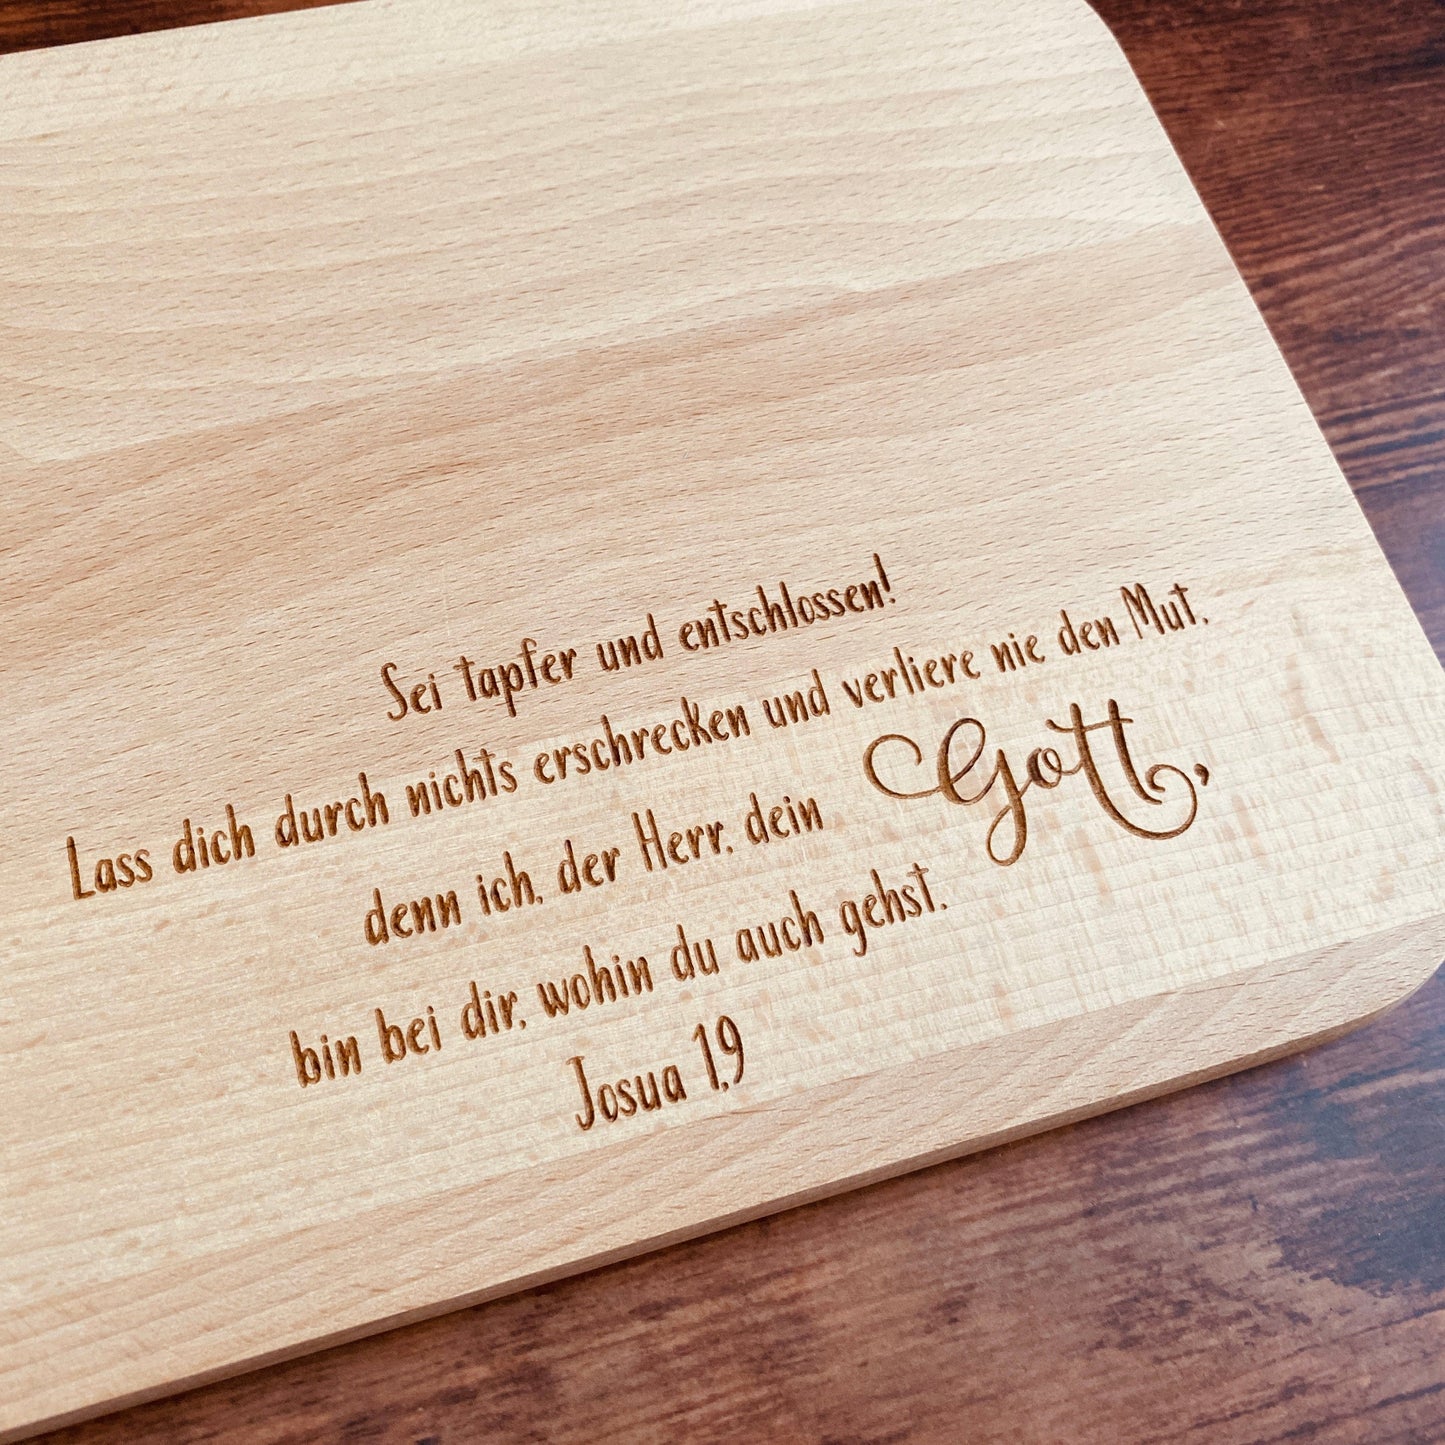 Sei tapfer und entschlossen!
Lass dich durch nichts erschrecken und verliere nie den Mut,
denn ich, der Herr, dein Gott,
bin bei dir, wohin du auch gehst.
Josua 1,9